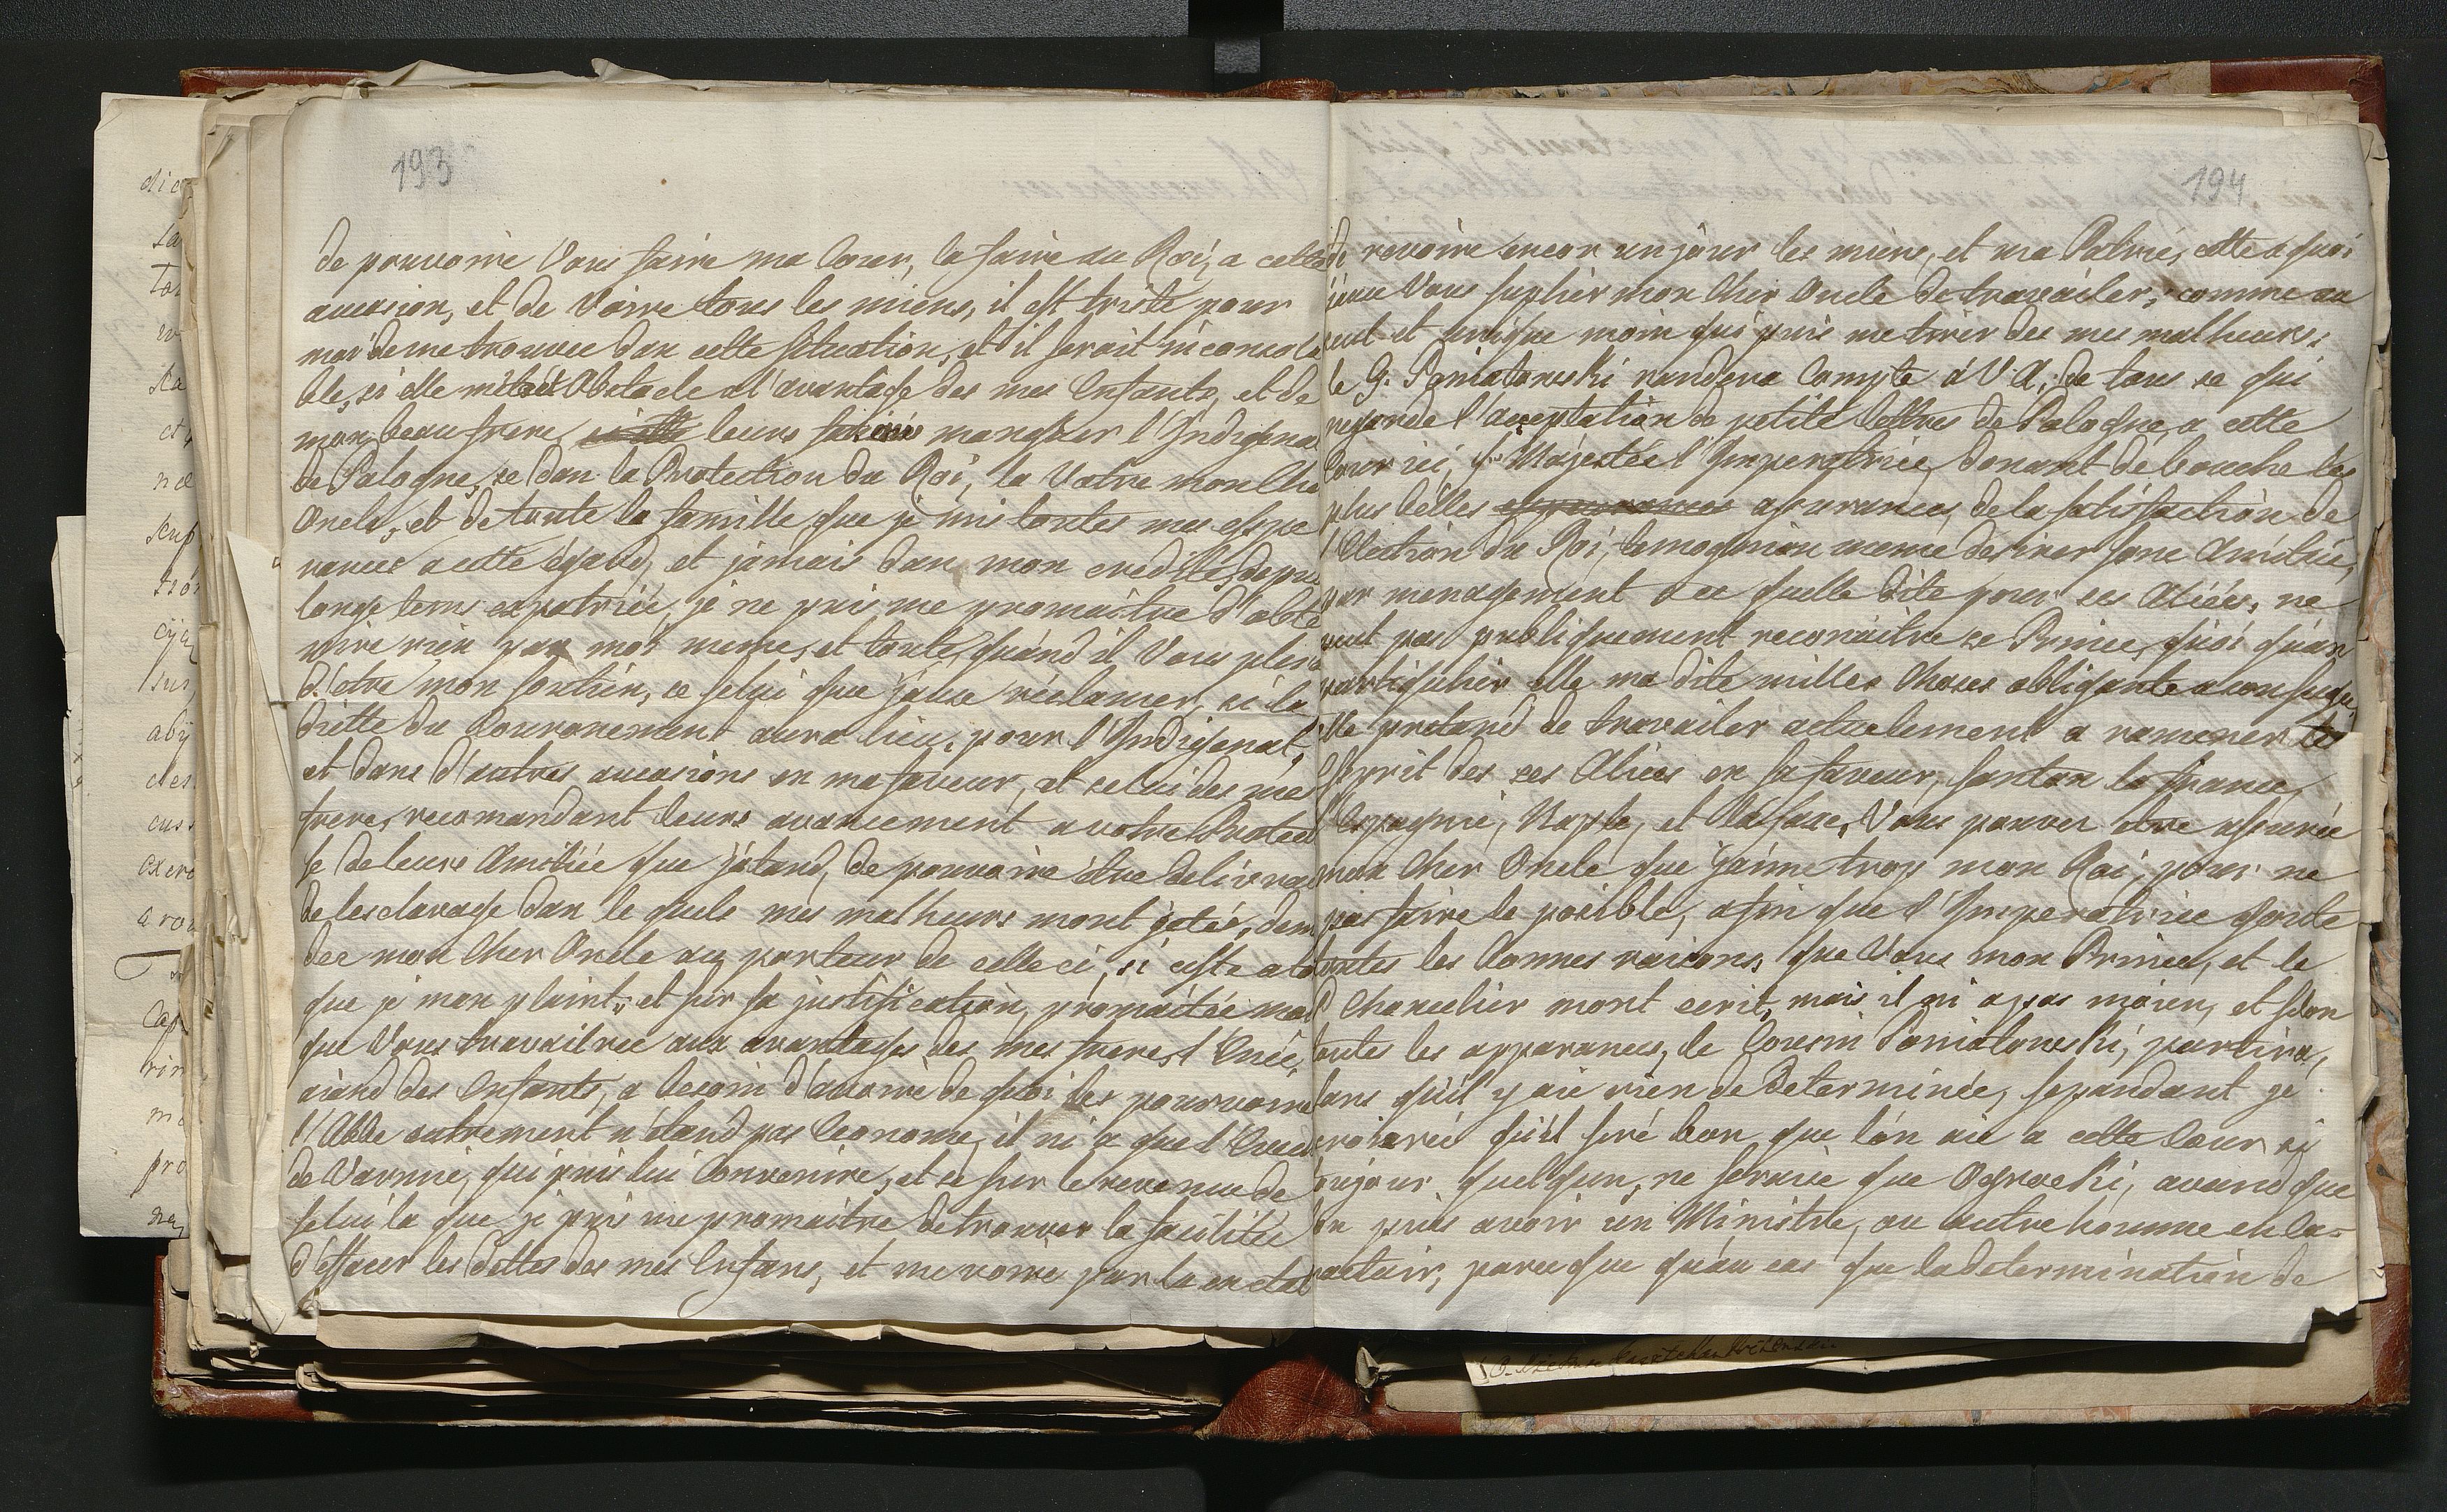 193
de pouvoire Vous faire ma Cour, la faire au Roi, a cette
aucasion, et de Voire tous les miens, il est triste pour
moi de me trouvee dan cette situation, et il serait inconsola
ble, si elle métrait Obstacle a l'avantage des mes Enfants, et de
mon beau frere, leurs manquer l'Indigena
de Pologne, se dan la Protection du Roi, la Votre mon Che
Oncle, et de toute la famille que je mis toutes mes espe
rances a cette égard, et jamais dan mon credit, depui
longe tems expatriée, je ne pui me promaitre d'obte
nire rien par moi meme, et toute quánd il Vous plera
d'etre mon soutien, se selui que j'ause réclamer, si la
diette du Couronement aura lieu, pour l'Indigenat,
et dans d'autres aucasions en ma faveur, et celui des mes
frere, recomandant leurs avancement a votre Protec
se de leurs Amitiée que j'atand, de pouvoire étre delivree
de lesclavage dan le quele mes malheurs mont jetée, dem
dee mon Cher Oncle au porteur de celle ci, si cest a to
que je mon plaint; et sur sa justification, promaitée moi
que Vous travailree aux avantages des mes freres l'Enée,
aiand des Enfants, a besoin d'avoire de quoi les pourvoire
l'Abbe autrement n'étand pas Econome, il ni a que l'Evech
de Varmie, qui puis lui Convenire, et se sur le revenue de
selui la que je puis me promaitre de trouver la facilitée
d'effacer les dettes des mes Enfans, et me voire par la en etat
194
de revoire encor un jour les miens, et ma Patrie, cette a quoi
j'ause Vous suplier mon Cher Oncle de travailer, comme au
seul et unique moin qui puis me tirer des mes malheurs;
le G. Poniatowski randera Compte á V. A. de tous se qui
regarde l'acceptation de petite lettres de Pologne, a cette
Cour ici, sa Majestée l'Imperatrice, donant de bouche les
plus bélles assurances, de la satisfaction de
l'Election du Roi, temognian meme desirer sone Amitiée,
par menagement a ce quelle dite pour ses Aliées, ne
veut pas publiquement reconaitre ce Prince, quoi quán
partiqulier elle ma dite milles choses obligante a son sugé,
elle pretand de travailer actuelement a ramener les
Esprit des ses Aliées en sa faveur, santan la France,
l'Espagnie, Naple, et la Saxe, Vous pouvez etre assurée
mon Cher Oncle que jaime trop mon Roi, pour ne
pas faire le posible, afin que l'Imperatrice goute
toutes les bonnes raisons, que Vous mon Prince, et le
Chancelier mont ecrit, mais il ni a pas moien, et selon
toutes les apparances, le Cousin Poniatowski, partira,
sans quil y aie rien de determinée, sepandant je
croiarée quil seré bon que lón aie a cette Cour ici
toujour quelqun, ne seraice que Ogroski, avand que
on puis avoir un Ministre, ou autre homme en Ca=
ractair, parceque quáu cas que la determination de